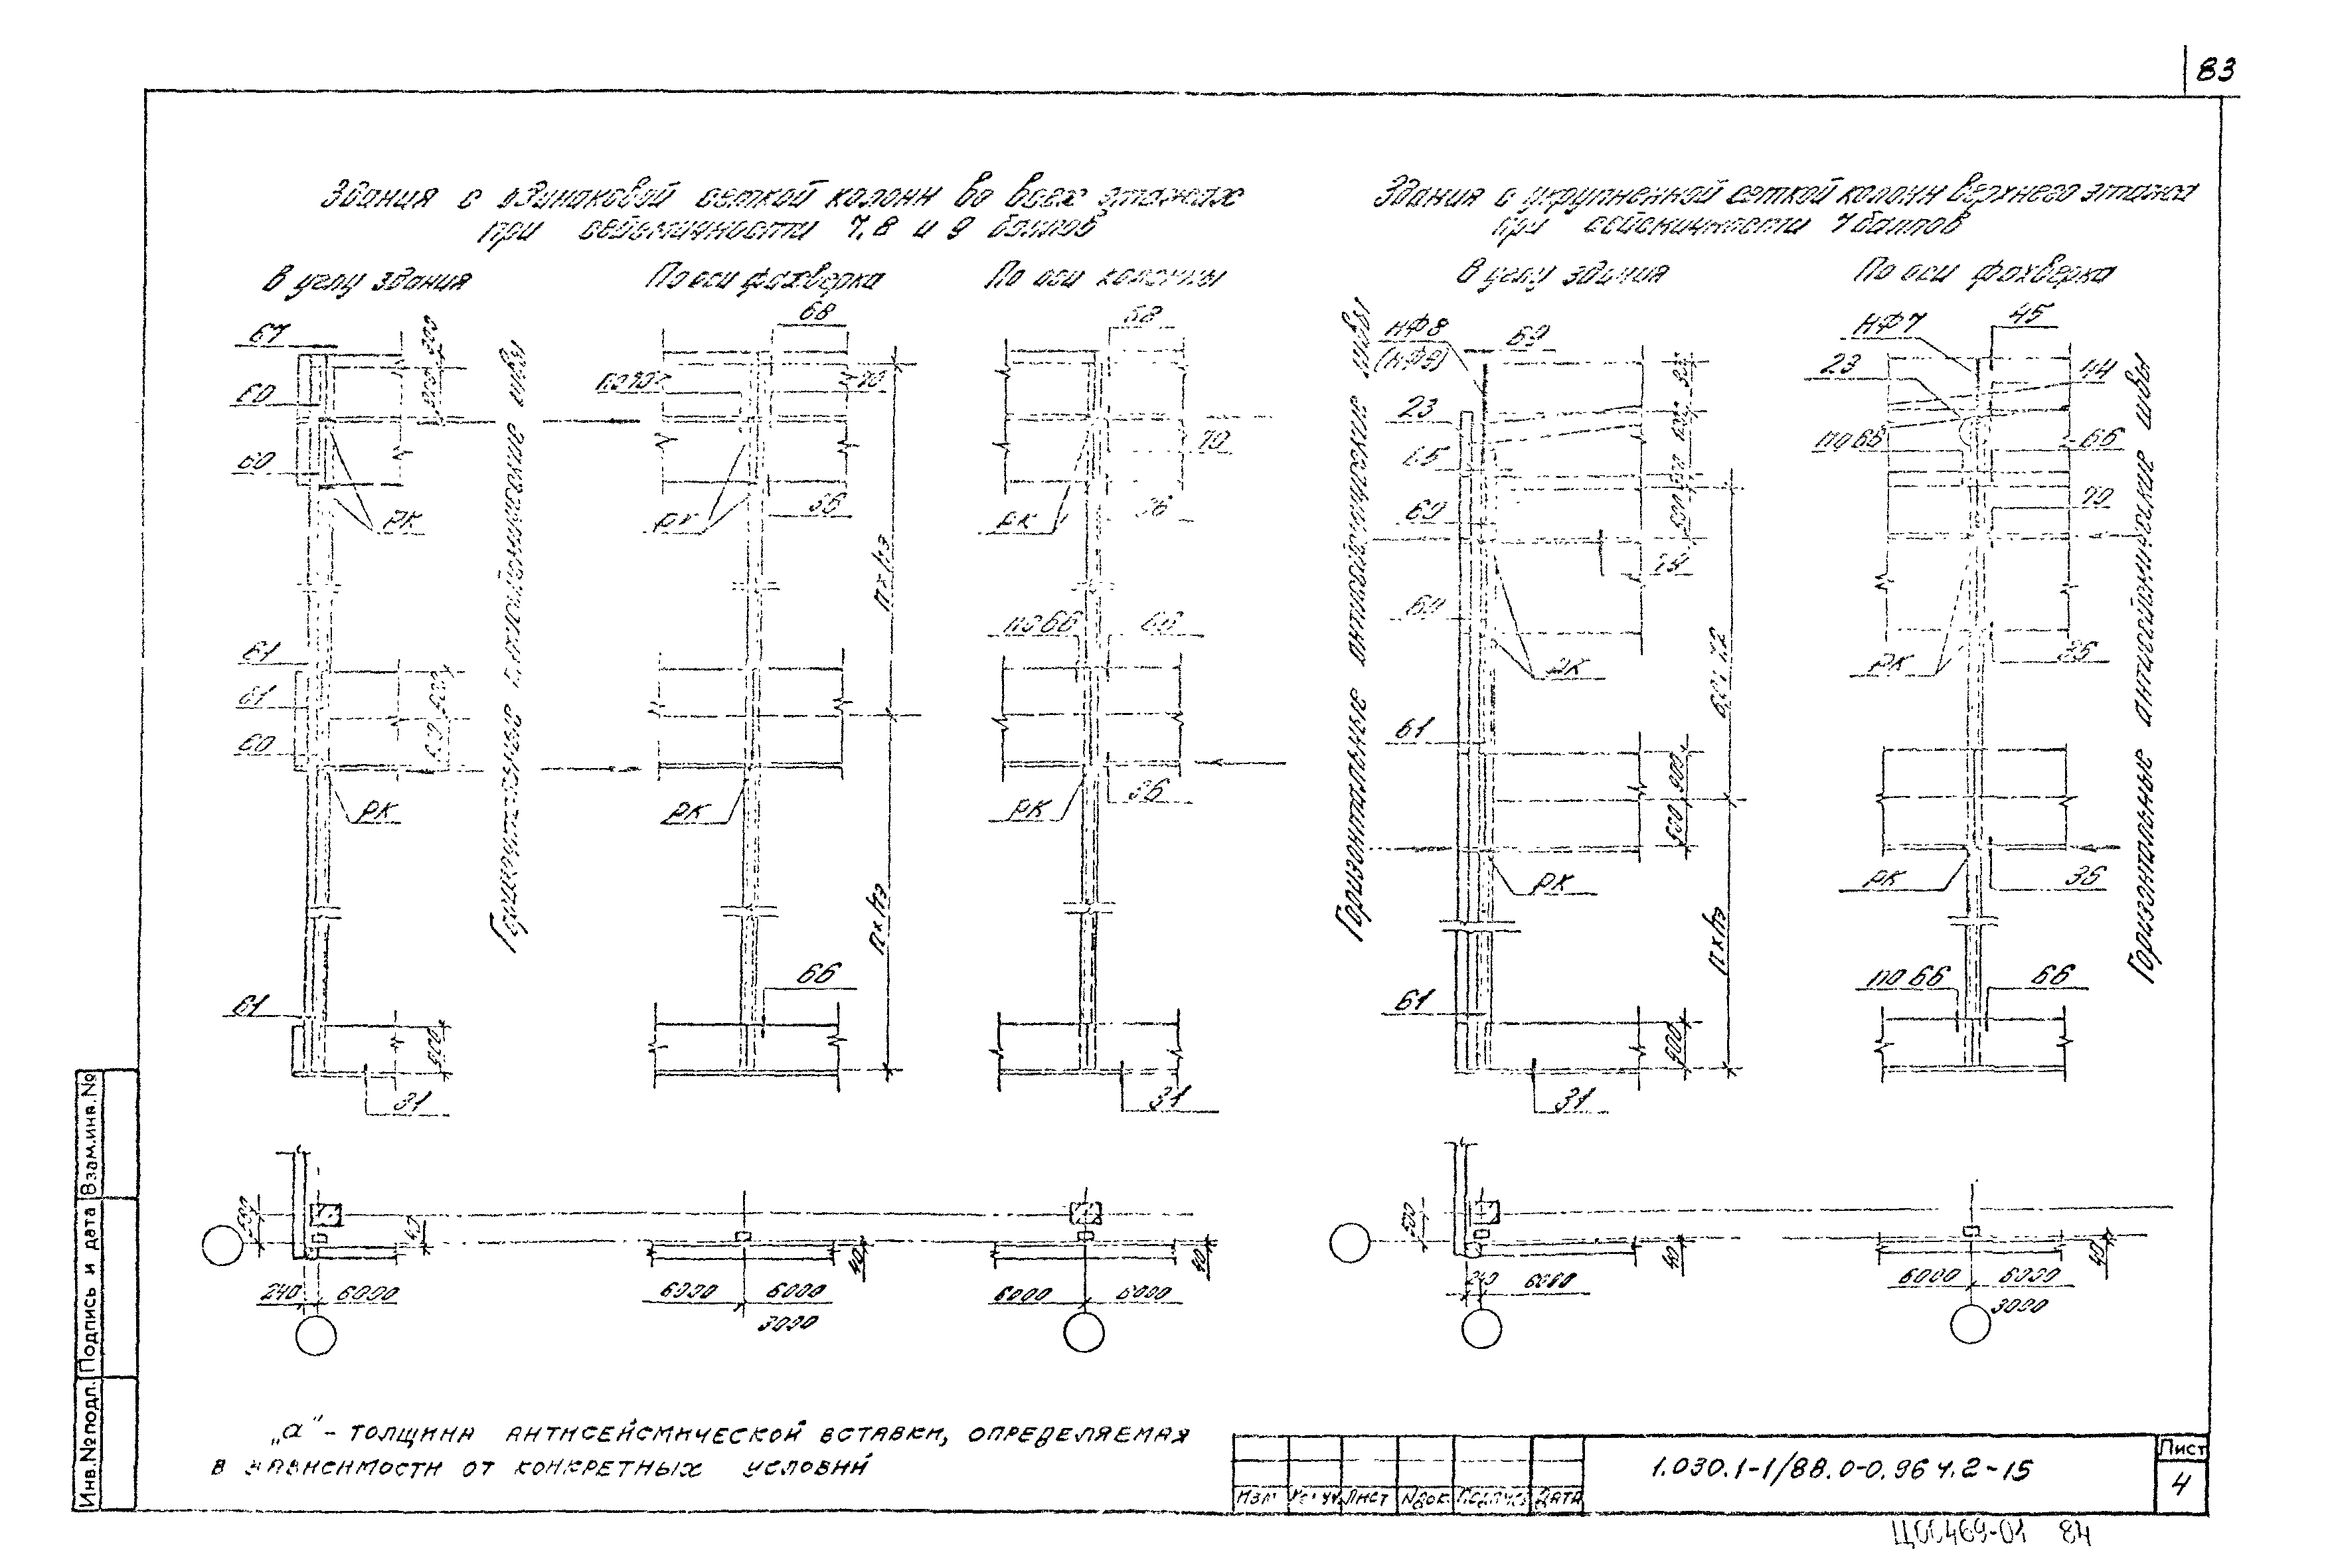 83
Здания с одинаковой сеткой колонн во всех этажах
при сейсмичности 7, 8 и 9 баллов
Здания с укрупненной сеткой колонн верхнего этажа
при сейсмичности 7 баллов
В углу здания
По оси фахверка
По оси колонны
В углу здания
По оси фахверка
67
60
60
РК
61
61
60
РК
61
900
31
Горизонтальные антисейсмические швы
68
по 70
70
РК
36
n×hэ
РК
n×hэ
66
68
70
РК
36
по 66
66
36
РК
31
Горизонтальные антисейсмические швы
НФ8
(НФ9)
69
23
60
РК
61
900
РК
n×hэ
61
900
31
НФ7
45
23
44
по 66
66
70
РК
36
РК
36
по 66
66
Горизонтальные антисейсмические швы
500
40
240
6000
6000
6000
3000
40
6000
6000
40
500
240
6000
40
6000
6000
3000
40
„а" - толщина антисейсмической вставки, определяемая
в зависимости от конкретных условий
Инв.№подл.
Подпись и дата
Взам.инв.№
Изм
Кол.уч
Лист
Nдок
Подпись
Дата
1.030.1-1/88.0-0.96 ч.2-15
Лист
4
Ц00469-01 84